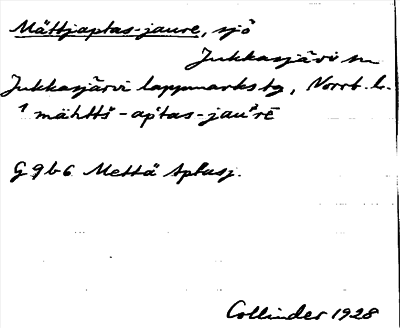 Mättjaptas-jaure, sjö
Jukkasjärvi sn
Jukkasjärvi lappmarks tg, Norrb. l.
1 mähttš-aptas-jaurē
G 9 b 6 Mettä Aptasj.
Collinder 1928